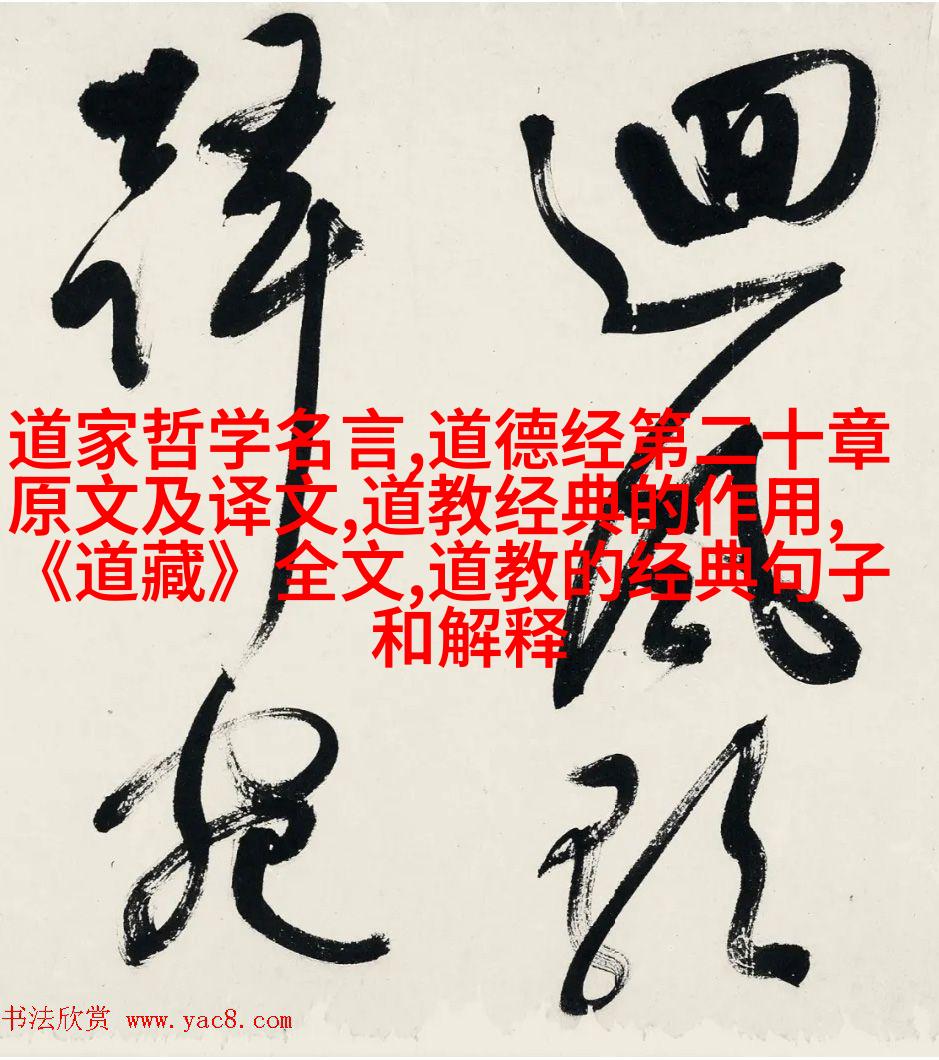 迴風
道家哲学名言,道德经第二十章
原文及译文,道教经典的作用,
《道藏》全文,道教的经典句子
和解释
书法欣赏 www.yac8.com